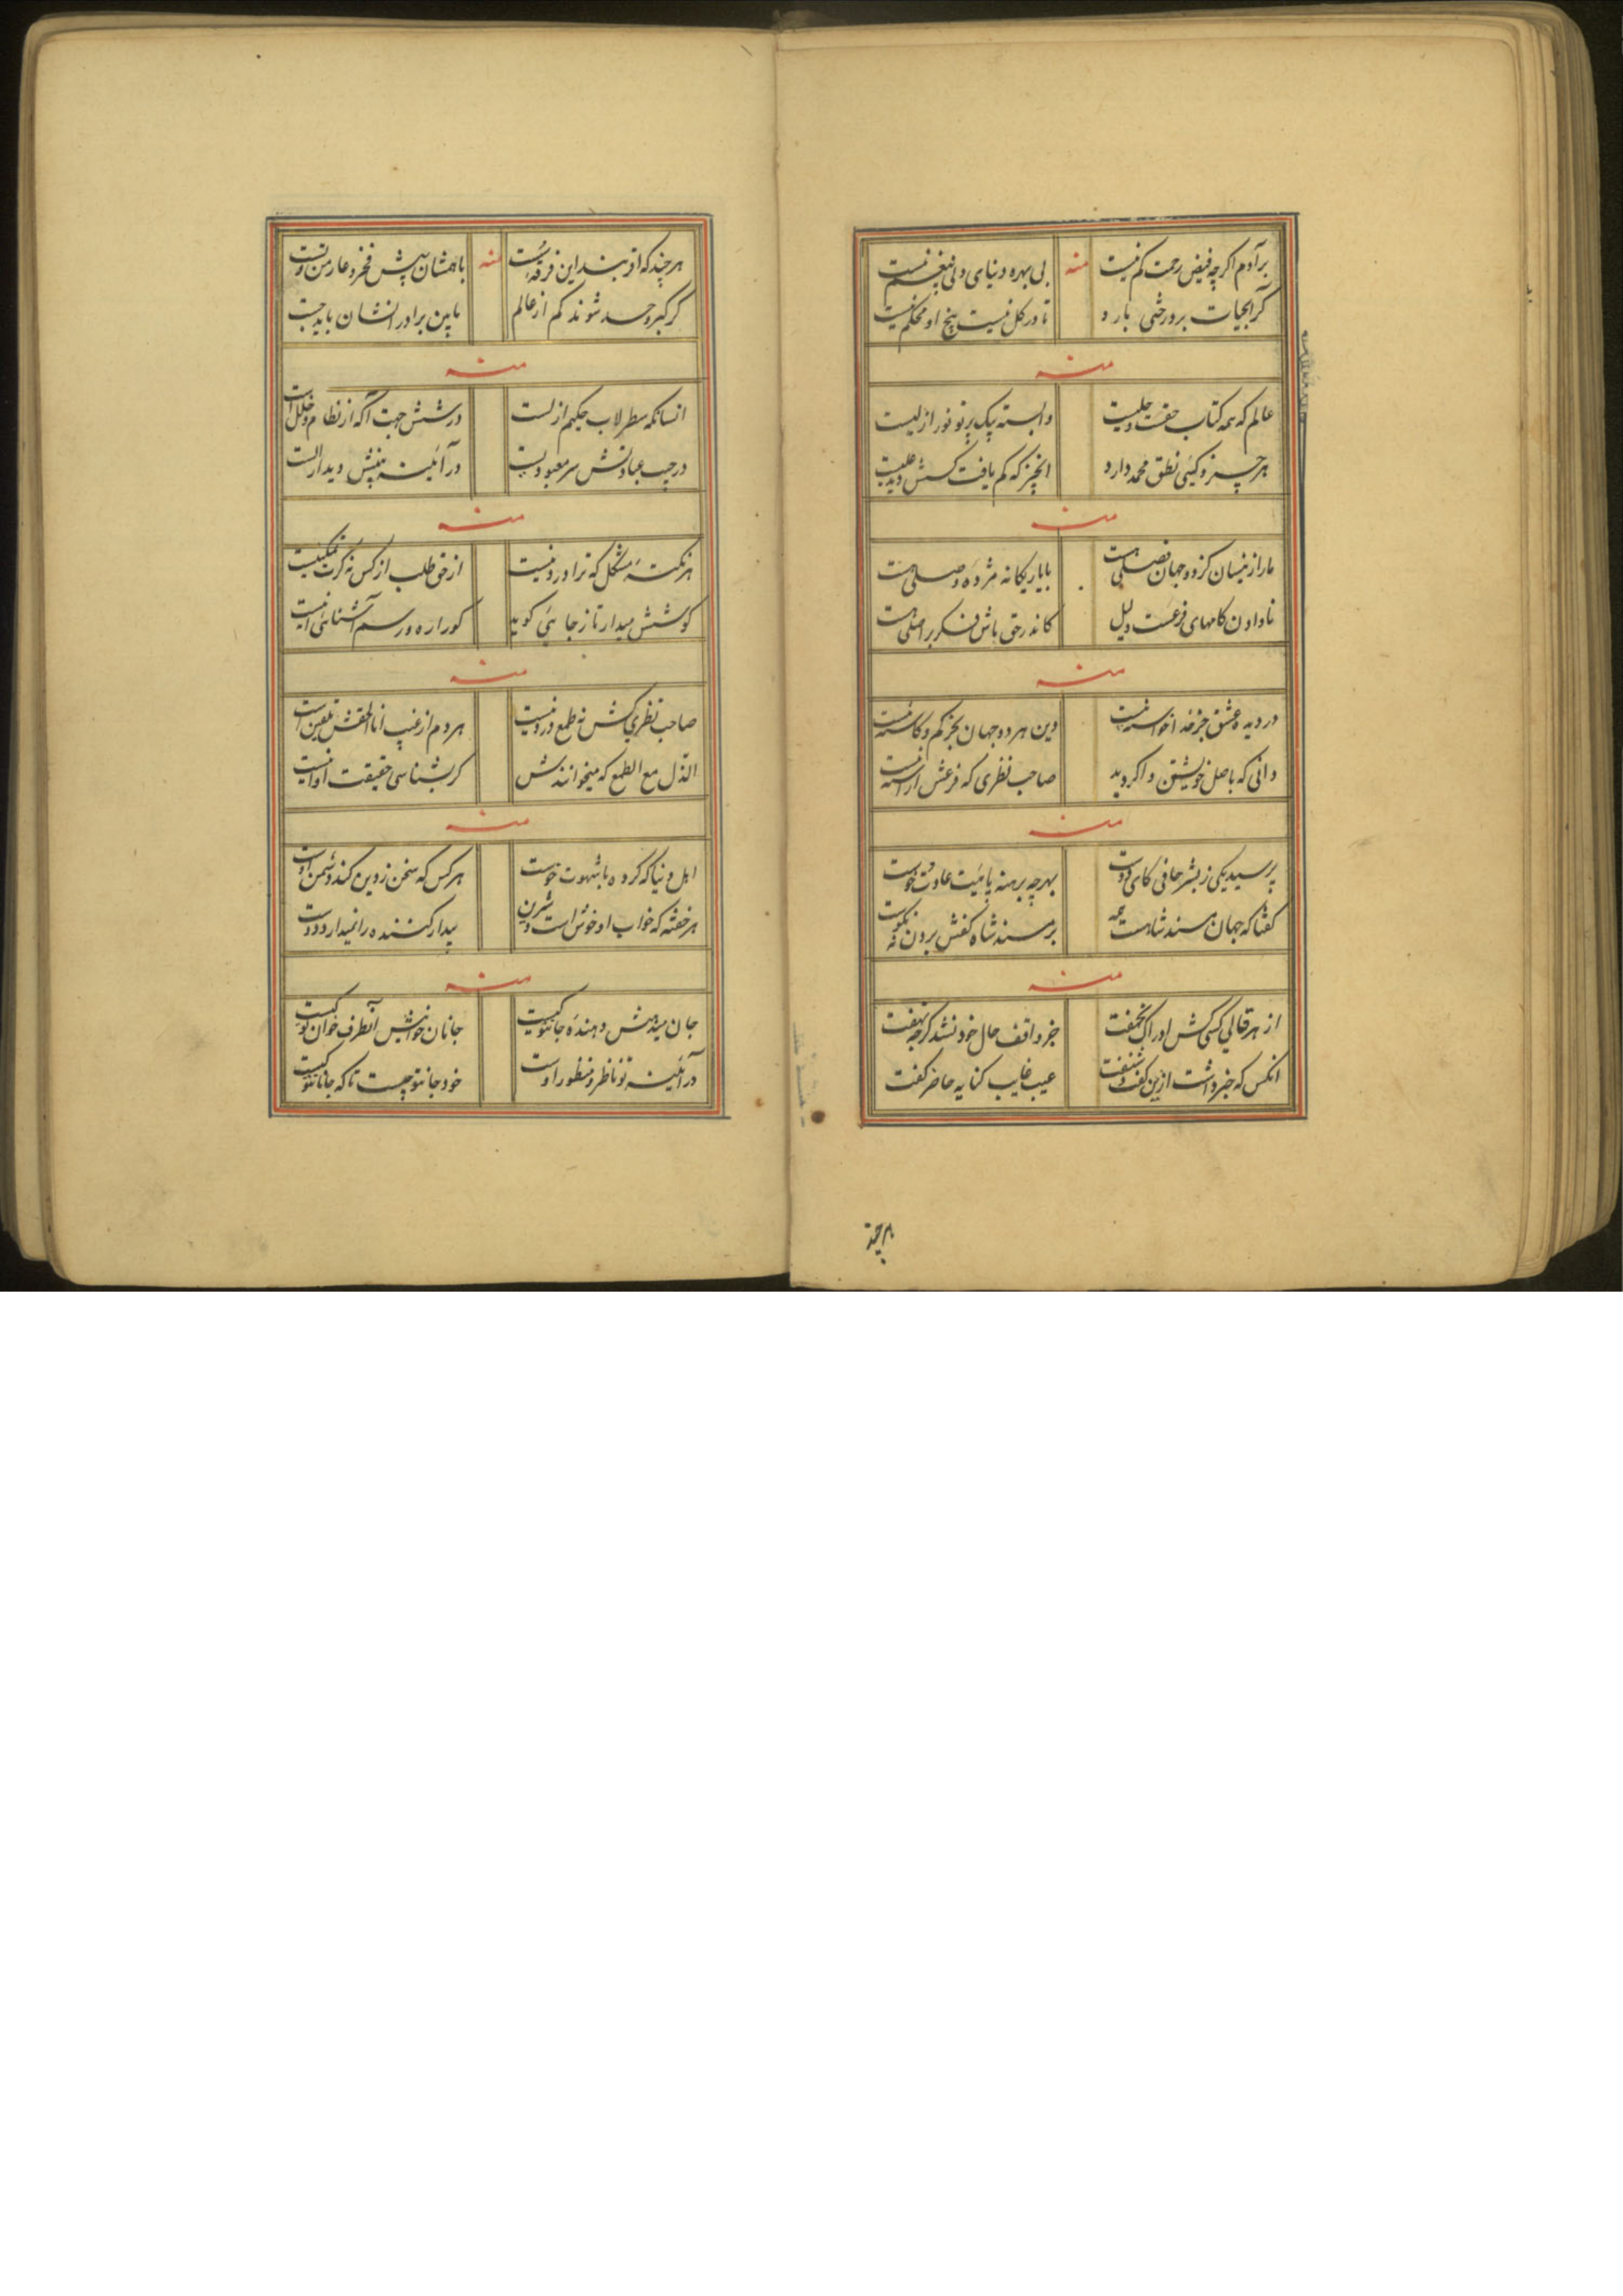 بر آدم اگرچه فیض رحمت کم نیست
منه
بی بهره و نیای ولی نیست
کرابحیات بر درختی بارد
تا در کل نیست بیخ او محکم نیست
منه
عالم که همه کتاب خفی و جلیست
وابسته بیک پرتو نور ازلیست
هر چیز و کسی نطق محمد دارد
انچیز که کم یافت کسش دید علیست
منه
ما را ز میسان کز دو جهان فصلی هست
با یار یکانه مژده وصلی هست
نادادن کامهای فرعست دلیل
کاندر حق ماش فکر بر اصلی هست
منه
در دیده عشق جز خدا خواسته نیست
وین هر دو جهان بجز کم و کاسته نیست
دانی که باصل خویشتن واکردید
صاحب نظری که فرعش اراسته نیست
منه
پرسید یکی ز بشر حافی کای دوست
بهر چه برهنه پائیت عادت و خوست
کفتا که جهان مسند شاهست همه
بر مسند شاه کفش بردن نه نکوست
منه
از هر قالبی کسی کش ادراک نخفت
جز واقف حال خود نشد کرچه نهفت
انکس که خبر داشت ازین کفت و شنفت
عیب غایب کنایه حاضر کفت
هر چند
هر چند که افزیند این فرقه سست
منه
باهمشان پیش فخر و عار من و تست
کر کبر و حسد شوند کم از عالم
مابین برادر انشان باید جست
منه
انسانکه سطرلاب حکیم ازلست
در شش جهت آکه از نظام و خلل است
در جیب عبادتش سر معبودیست
در آئینه بینش دیدار الست
منه
هر نکته مشکل که ترا در دو نیست
از حق طلب از کس نه کرت تمکینیست
کوشش میدار تا ز جا نی کوید
کو را ره و رسم آشنائی نیست
منه
صاحب نظری کش نه طمع در دو نیست
هر دم از غیب انا الحقش تعیین است
الذل مع الطمع که میخوانندش
کر بشناسی حقیقت او نیست
منه
اهل دنیا که کرده با شهوت خوست
هر کس که سخن ز دین کند دشمن اوست
هر خفته که خواب او خوش است و شیرین
بیدار کننده را نمیدارد دوست
منه
جان میدهش دهنده جانتو کیست
جانان خوانیش آنطرف خوان تو کیست
در آئینه تو ناظر و منظور اوست
خود جانتو چیست تا که جانانتو کیست